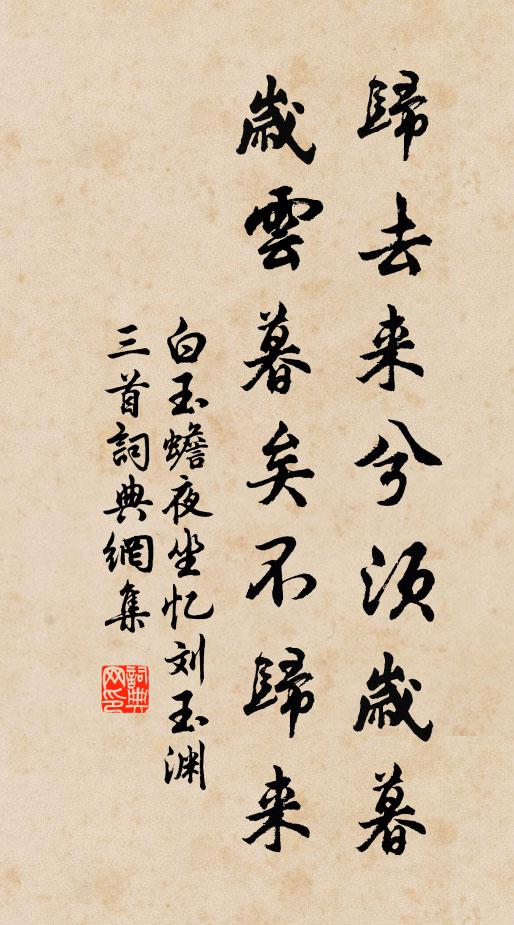 歸去来兮須歲暮
歲雲暮矣不歸来
白玉蟾夜坐忆刘玉渊
三首詞典網集
詞典
网印